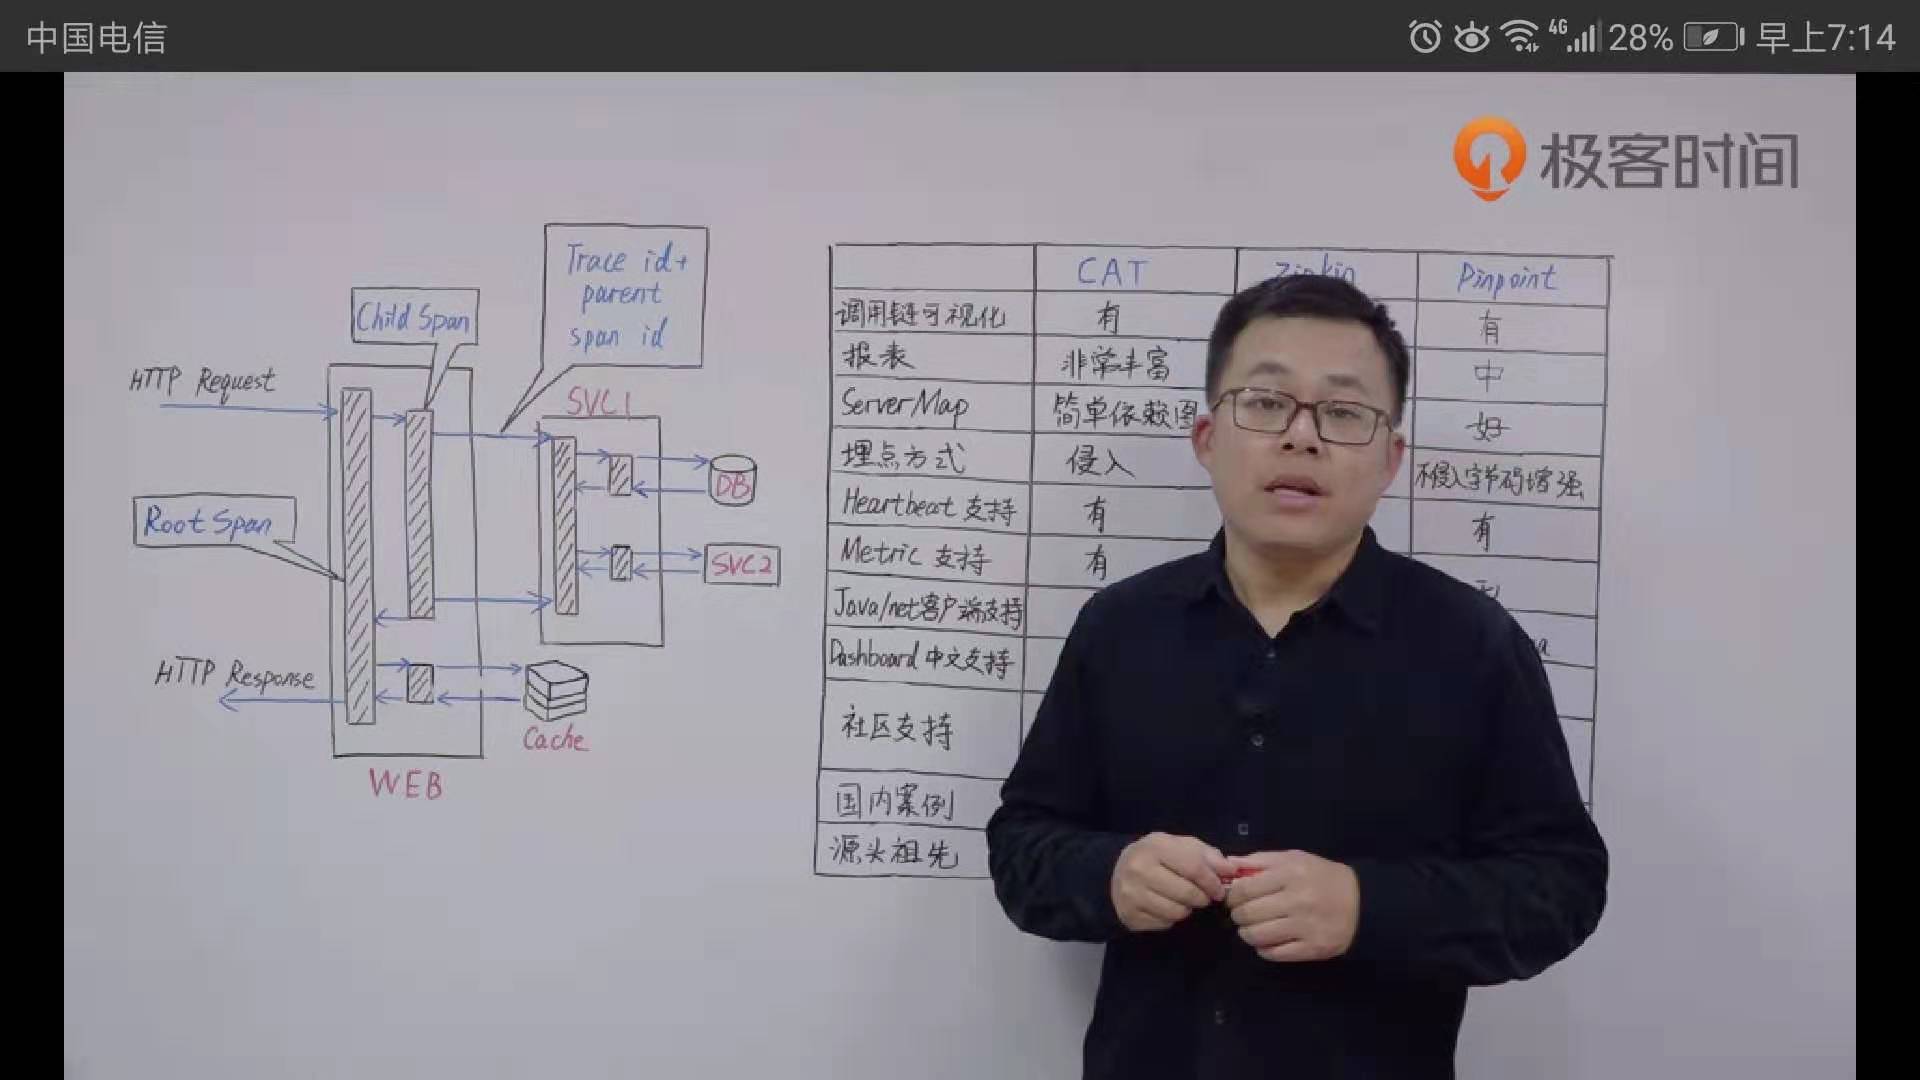 中国电信
4G
28%
早上7:14
极客时间
Trace id+
parent
span id
Child Span
HTTP Request
SVC1
DB
Root Span
SVC2
HTTP Response
Cache
WEB
CAT
Pinpoint
调用链可视化
有
有
报表
非常丰富
中
ServerMap
简单依赖图
好
埋点方式
侵入
不侵入字节码增强
Heartbeat 支持
有
有
Metric 支持
有
Java/net客户端支持
Dashboard 中文支持
社区支持
国内案例
源头祖先